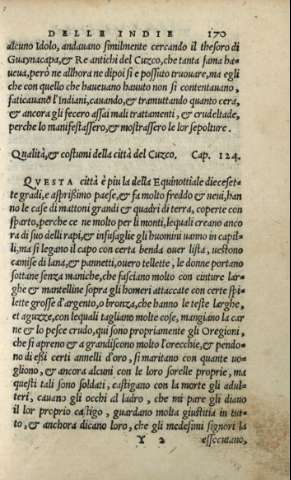 DELLE INDIE 170
alcuno Idolo, andauano similmente cercando il thesoro di
Guaynacapa, & Re antichi del Cuzco, che tanta fama ha-
ueua, però ne allhora ne dipoi si e possuto truouare, ma egli
che con quello che haueuano hauuto non si contentauano,
faticauano l'Indiani, cauando, & tramuttando quanto cera,
& ancora gli fecero assai mali trattamenti, & crudeltade,
perche lo manifestassero, & mostrassero le lor sepolture.
Qualità, & costumi della città del Cuzco. Cap. 124.
QVESTA città è piu la della Equinottiale dieceset-
te gradi, e aspρissimo paese, & fa molto freddo & neui, han
no le case di mattoni grandi & quadri di terra, coperte con
sparto, perche ce ne molto per li monti, lequali creano anco
ra di suo delli rapi, & infusaglie gli huomini uanno in capil-
li, ma si legano il capo con certa benda ouer lista, uestono
camise di lana, & pannetti, ouero tellette, le donne portano
sottane senza maniche, che fasciano molto con cinture lar-
ghe & mantelline sopra gli homeri attaccate con certe spi-
lette grosse d'argento, o bronza, che hanno le teste larghe,
et aguzze, con lequali tagliano molte cose, mangiano la car
ne & lo pesce crudo, qui sono propriamente gli Oregioni,
che si apreno & agrandiscono molto l'orecchie, & pendo-
no di essi certi annelli d'oro, si maritano con quante uo-
gliono, & ancora alcuni con le loro sorelle proprie, ma
questi tali sono soldati, castigano con la morte gli adul-
teri, cauano gli occhi al ladro, che mi pare gli diano
il lor proprio castigo, guardano molta giustitia in tut-
to, & anchora dicano loro, che gli medesimi signori la
Y 2 essecutano,